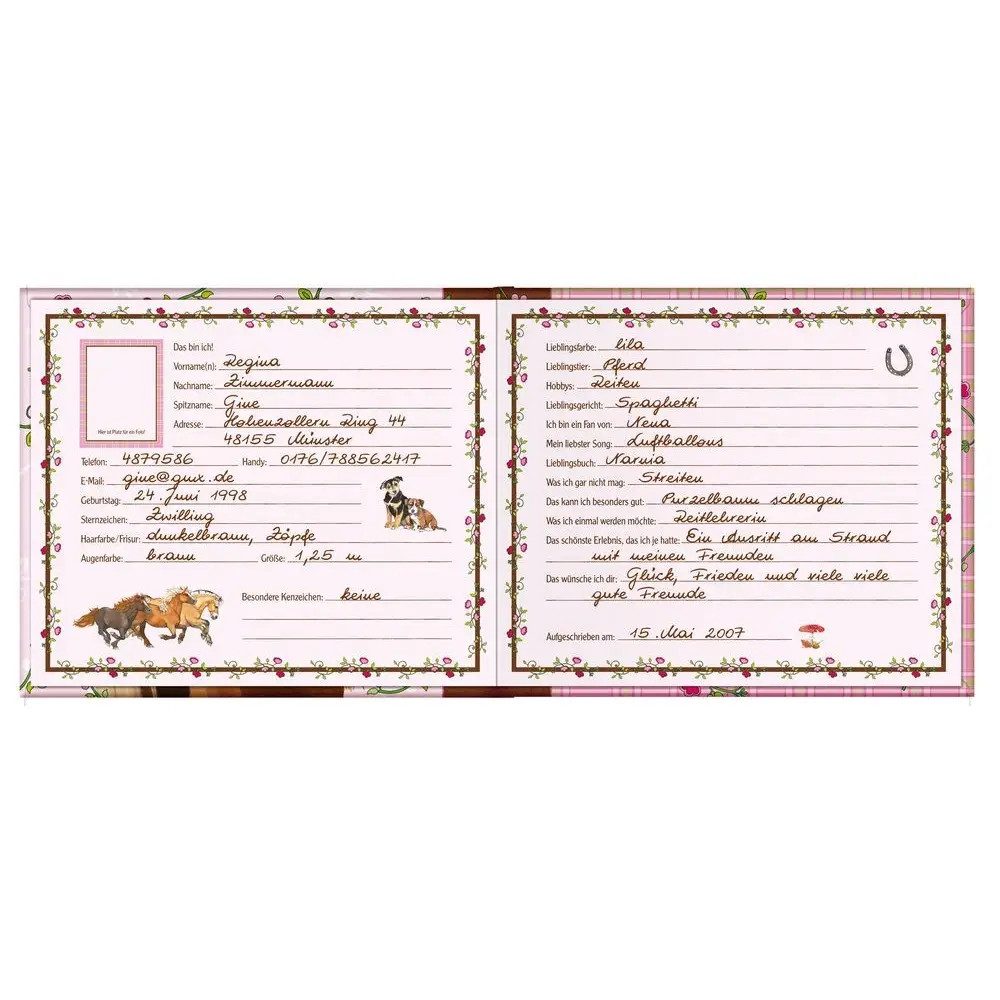 Das bin ich!
Vorname(n): Regina
Nachname: Zimmermann
Spitzname: Gine
Adresse: Hohenzollern Ring 44
48155 Münster
Hier ist Platz für ein Foto!
Telefon: 4879586 Handy: 0176/788562417
E-Mail: gine@gmx.de
Geburtstag: 24. Juni 1998
Sternzeichen: Zwilling
Haarfarbe/Frisur: dunkelbraun, Zöpfe
Augenfarbe: braun Größe: 1,25 m
Besondere Kenzeichen: keine
Lieblingsfarbe: lila
Lieblingstier: Pferd
Hobbys: Reiten
Lieblingsgericht: Spaghetti
Ich bin ein Fan von: Nena
Mein liebster Song: Luftballons
Lieblingsbuch: Narnia
Was ich gar nicht mag: Streiten
Das kann ich besonders gut: Purzelbaum schlagen
Was ich einmal werden möchte: Reitlehrerin
Das schönste Erlebnis, das ich je hatte: Ein Ausritt am Strand
mit meinen Freunden
Das wünsche ich dir: Glück, Frieden und viele viele
gute Freunde
Aufgeschrieben am: 15. Mai 2007